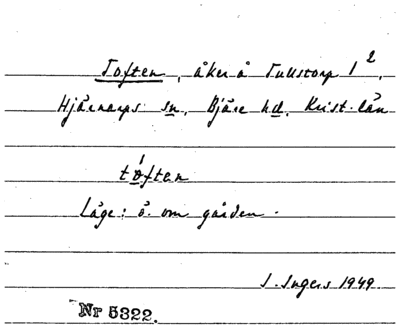 Toften, åker å Tullstorp 1²,
Hjärnarps sn, Bjäre hd, Krist. län
tǿften
Läge: ö. om gården.
I. Ingers 1949
Nr 5322.